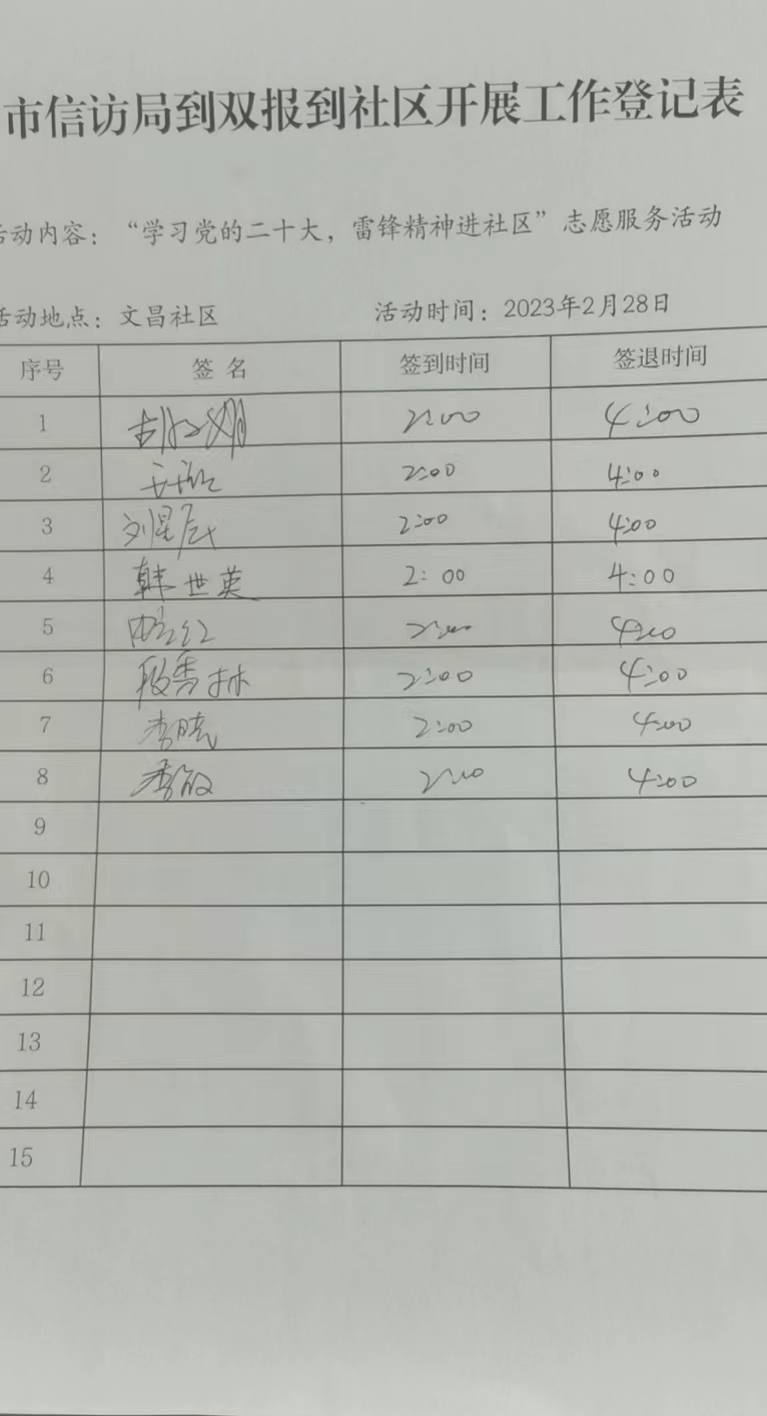 市信访局到双报到社区开展工作登记表
活动内容：“学习党的二十大，雷锋精神进社区”志愿服务活动
活动地点：文昌社区 活动时间：2023年2月28日
序号 签名 签到时间 签退时间
1 2:00 4:00
2 2:00 4:00
3 刘星辰 2:00 4:00
4 韩世英 2:00 4:00
5 2:00 4:00
6 段秀林 2:00 4:00
7 李晓 2:00 4:00
8 李敏 2:00 4:00
9
10
11
12
13
14
15